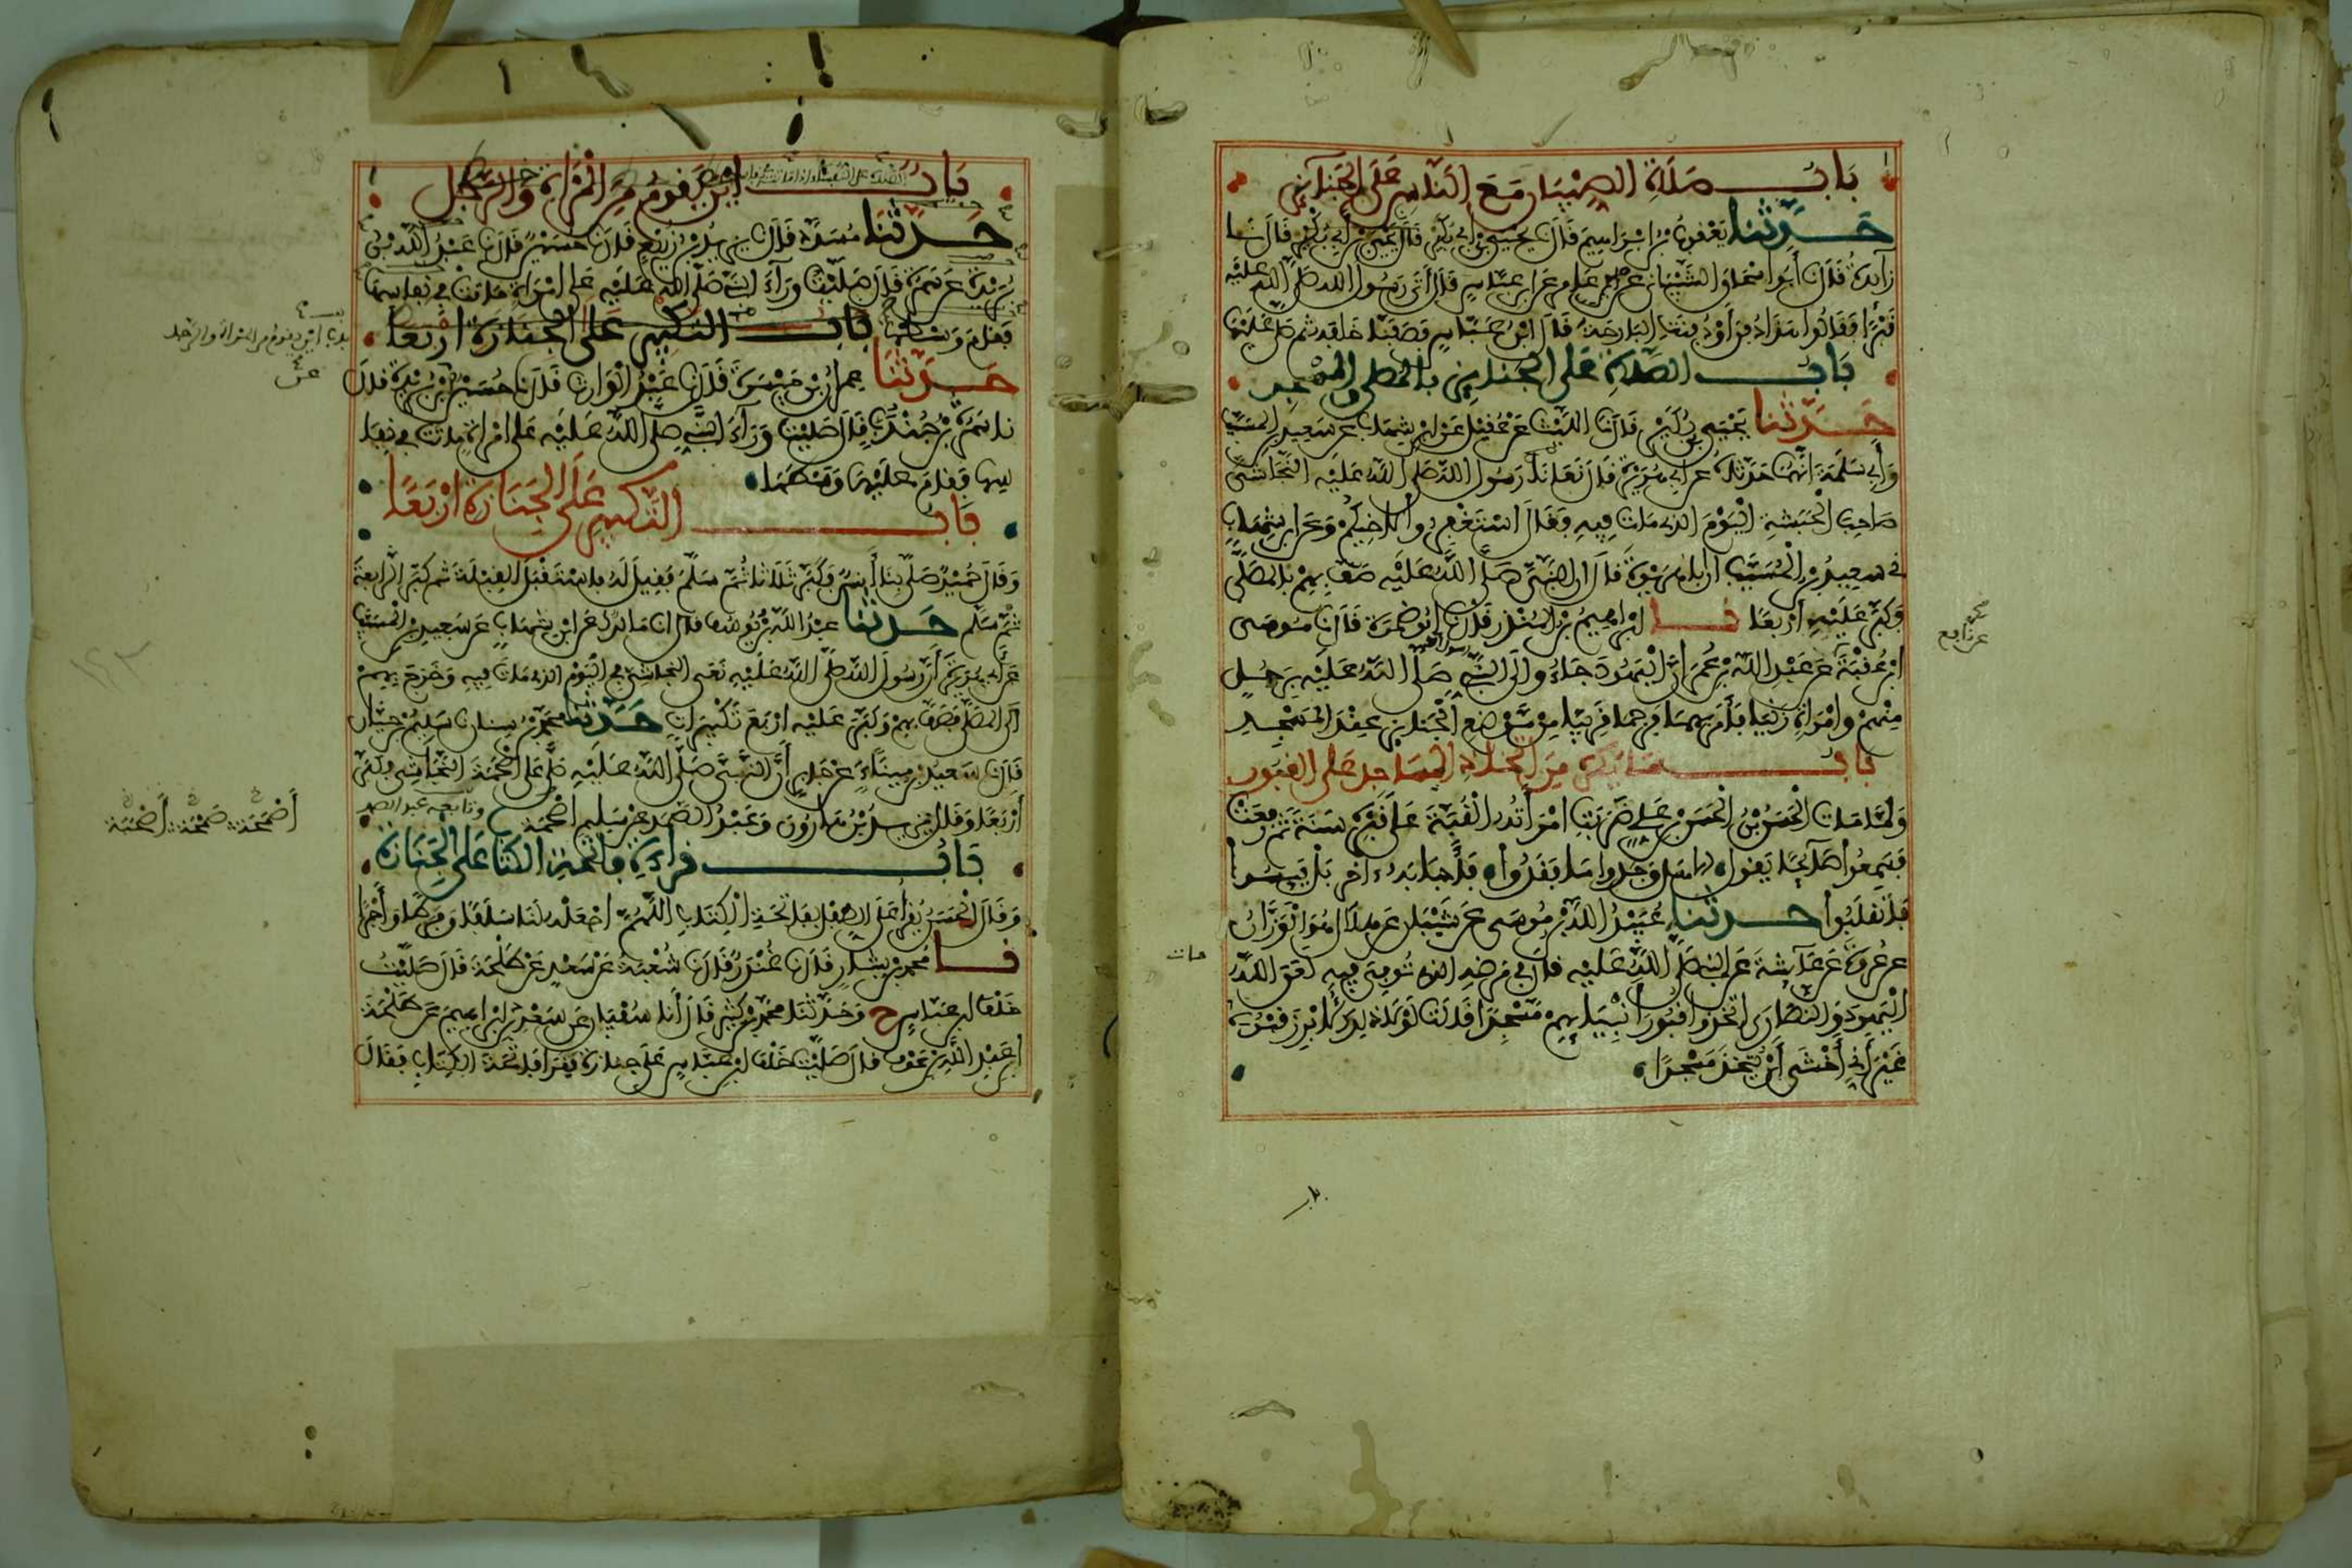 بَابُ صَلَاةِ الصِّبْيَانِ مَعَ النَّاسِ عَلَى الْجَنَائِزِ
حَدَّثَنَا يَعْقُوبُ بْنُ إِبْرَاهِيمَ قَالَ نَا يَحْيَى بْنُ أَبِي بُكَيْرٍ قَالَ نَا
زَائِدَةُ قَالَ نَا أَبُو إِسْحَاقَ الشَّيْبَانِي عَنْ عَامِرٍ عَنِ ابْنِ عَبَّاسٍ قَالَ أَتَى رَسُولُ اللَّهِ صَلَّى اللَّهُ عَلَيْهِ
قَبْرًا فَقَالُوا هَذَا دُفِنَ أَوْ دُفِنَتِ الْبَارِحَةَ قَالَ ابْنُ عَبَّاسٍ فَصَفَّنَا خَلْفَهُ ثُمَّ صَلَّى عَلَيْهَا
بَابُ الصَّلَاةِ عَلَى الْجَنَائِزِ بِالْمُصَلَّى وَالْمَسْجِدِ
حَدَّثَنَا يَحْيَى بْنُ بُكَيْرٍ قَالَ نَا اللَّيْثُ عَنْ عُقَيْلٍ عَنِ ابْنِ شِهَابٍ عَنْ سَعِيدِ بْنِ الْمُسَيَّبِ
وَأَبِي سَلَمَةَ أَنَّهُمَا حَدَّثَاهُ عَنْ أَبِي هُرَيْرَةَ قَالَ نَعَى لَنَا رَسُولُ اللَّهِ صَلَّى اللَّهُ عَلَيْهِ النَّجَاشِيَّ
صَاحِبَ الْحَبَشَةِ الْيَوْمَ الَّذِي مَاتَ فِيهِ فَقَالَ اسْتَغْفِرُوا لِأَخِيكُمْ وَعَنِ ابْنِ شِهَابٍ
نِي سَعِيدُ بْنُ الْمُسَيَّبِ أَنَّ أَبَا هُرَيْرَةَ قَالَ إِنَّ النَّبِيَّ صَلَّى اللَّهُ عَلَيْهِ صَفَّ بِهِمْ بِالْمُصَلَّى
وَكَبَّرَ عَلَيْهِ أَرْبَعًا نَا إِبْرَاهِيمُ بْنُ الْمُنْذِرِ قَالَ نَا أَبُو ضَمْرَةَ قَالَ نَا مُوسَى
ابْنُ عُقْبَةَ عَنْ عَبْدِ اللَّهِ بْنِ عُمَرَ أَنَّ الْيَهُودَ جَاءُوا إِلَى النَّبِيِّ صَلَّى اللَّهُ عَلَيْهِ بِرَجُلٍ
مِنْهُمْ وَامْرَأَةٍ زَنَيَا فَأَمَرَ بِهِمَا فَرُجِمَا قَرِيبًا مِنْ مَوْضِعِ الْجَنَائِزِ عِنْدَ الْمَسْجِدِ
بَابُ مَا يُكْرَهُ مِنِ اتِّخَاذِ الْمَسَاجِدِ عَلَى الْقُبُورِ
وَلَمَّا مَاتَ الْحَسَنُ بْنُ الْحَسَنِ بْنِ عَلِيٍّ ضَرَبَتِ امْرَأَتُهُ الْقُبَّةَ عَلَى قَبْرِهِ سَنَةً ثُمَّ رُفِعَتْ
فَسَمِعُوا صَائِحًا يَقُولُ أَلَا هَلْ وَجَدُوا مَا فَقَدُوا فَأَجَابَهُ آخَرُ بَلْ يَئِسُوا
فَانْقَلَبُوا حَدَّثَنَا عُبَيْدُ اللَّهِ بْنُ مُوسَى عَنْ شَيْبَانَ عَنْ هِلَالٍ هُوَ الْوَزَّانُ
عَنْ عُرْوَةَ عَنْ عَائِشَةَ عَنِ النَّبِيِّ صَلَّى اللَّهُ عَلَيْهِ قَالَ فِي مَرَضِهِ الَّذِي تُوُفِّيَ فِيهِ لَعَنَ اللَّهُ
الْيَهُودَ وَالنَّصَارَى اتَّخَذُوا قُبُورَ أَنْبِيَائِهِمْ مَسْجِدًا قَالَتْ لَوْلَا ذَلِكَ لَأُبْرِزَ قَبْرُهُ
غَيْرَ أَنِّي أَخْشَى أَنْ يُتَّخَذَ مَسْجِدًا
بَابُ أَيْنَ يَقُومُ مِنَ الْمَرْأَةِ وَالرَّجُلِ
حَدَّثَنَا مُسَدَّدٌ قَالَ نَا يَزِيدُ بْنُ زُرَيْعٍ قَالَ نَا حُسَيْنٌ قَالَ نَا عَبْدُ اللَّهِ بْنُ
بُرَيْدَةَ عَنْ سَمُرَةَ قَالَ صَلَّيْتُ وَرَاءَ النَّبِيِّ صَلَّى اللَّهُ عَلَيْهِ عَلَى امْرَأَةٍ مَاتَتْ فِي نِفَاسِهَا
فَقَامَ وَسَطَهَا بَابُ التَّكْبِيرِ عَلَى الْجَنَازَةِ أَرْبَعًا
حَدَّثَنَا عِمْرَانُ بْنُ مَيْسَرَةَ قَالَ نَا عَبْدُ الْوَارِثِ قَالَ نَا حُسَيْنٌ عَنِ ابْنِ بُرَيْدَةَ قَالَ
نَا سَمُرَةُ بْنُ جُنْدُبٍ قَالَ صَلَّيْتُ وَرَاءَ النَّبِيِّ صَلَّى اللَّهُ عَلَيْهِ عَلَى امْرَأَةٍ مَاتَتْ فِي نِفَا
سِهَا فَقَامَ عَلَيْهَا وَسَطَهَا
بَابُ التَّكْبِيرِ عَلَى الْجَنَازَةِ أَرْبَعًا
وَقَالَ حُمَيْدٌ صَلَّى بِنَا أَنَسٌ فَكَبَّرَ ثَلَاثًا ثُمَّ سَلَّمَ فَقِيلَ لَهُ فَاسْتَقْبَلَ الْقِبْلَةَ ثُمَّ كَبَّرَ الرَّابِعَةَ
ثُمَّ سَلَّمَ حَدَّثَنَا عَبْدُ اللَّهِ بْنُ يُوسُفَ قَالَ أَنَا مَالِكٌ عَنِ ابْنِ شِهَابٍ عَنْ سَعِيدِ بْنِ الْمُسَيَّبِ
عَنْ أَبِي هُرَيْرَةَ أَنَّ رَسُولَ اللَّهِ صَلَّى اللَّهُ عَلَيْهِ نَعَى النَّجَاشِيَّ فِي الْيَوْمِ الَّذِي مَاتَ فِيهِ وَخَرَجَ بِهِمْ
إِلَى الْمُصَلَّى فَصَفَّ بِهِمْ وَكَبَّرَ عَلَيْهِ أَرْبَعَ تَكْبِيرَاتٍ حَدَّثَنَا مُحَمَّدُ بْنُ سِنَانٍ نَا سَلِيمُ بْنُ حَيَّانَ
قَالَ نَا سَعِيدُ بْنُ مِينَاءَ عَنْ جَابِرٍ أَنَّ النَّبِيَّ صَلَّى اللَّهُ عَلَيْهِ صَلَّى عَلَى أَصْحَمَةَ النَّجَاشِي فَكَبَّرَ
أَرْبَعًا وَقَالَ يَزِيدُ بْنُ هَارُونَ وَعَبْدُ الصَّمَدِ عَنْ سَلِيمٍ أَصْحَمَةَ وتابعه عبد الصمد
بَابُ قِرَاءَةِ فَاتِحَةِ الْكِتَابِ عَلَى الْجَنَازَةِ
وَقَالَ الْحَسَنُ يَقْرَأُ عَلَى الطِّفْلِ بِفَاتِحَةِ الْكِتَابِ اللَّهُمَّ اجْعَلْهُ لَنَا سَلَفًا وَفَرَطًا وَأَجْرًا
نَا مُحَمَّدُ بْنُ بَشَّارٍ قَالَ نَا غُنْدَرٌ قَالَ نَا شُعْبَةُ عَنْ سَعْدٍ عَنْ طَلْحَةَ قَالَ صَلَّيْتُ
خَلْفَ ابْنِ عَبَّاسٍ ح وَحَدَّثَنَا مُحَمَّدُ بْنُ كَثِيرٍ قَالَ أَنَا سُفْيَانُ عَنْ سَعْدِ بْنِ إِبْرَاهِيمَ عَنْ طَلْحَةَ
ابْنِ عَبْدِ اللَّهِ بْنِ عَوْفٍ قَالَ صَلَّيْتُ خَلْفَ ابْنِ عَبَّاسٍ عَلَى جِنَازَةٍ فَقَرَأَ فَاتِحَةَ الْكِتَابِ فَقَالَ
باب أين يقوم من المرأة والرجل
أَصْحَمَةَ صَحْمَةَ
عن نافع